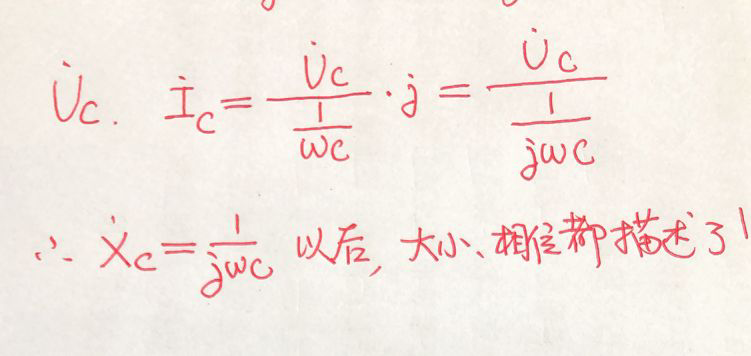 U̇c. İc = U̇c / (1/ωC) · j = U̇c / (1/jωC)
∴ Ẋc = 1/jωC 以后, 大小、相位都描述了!